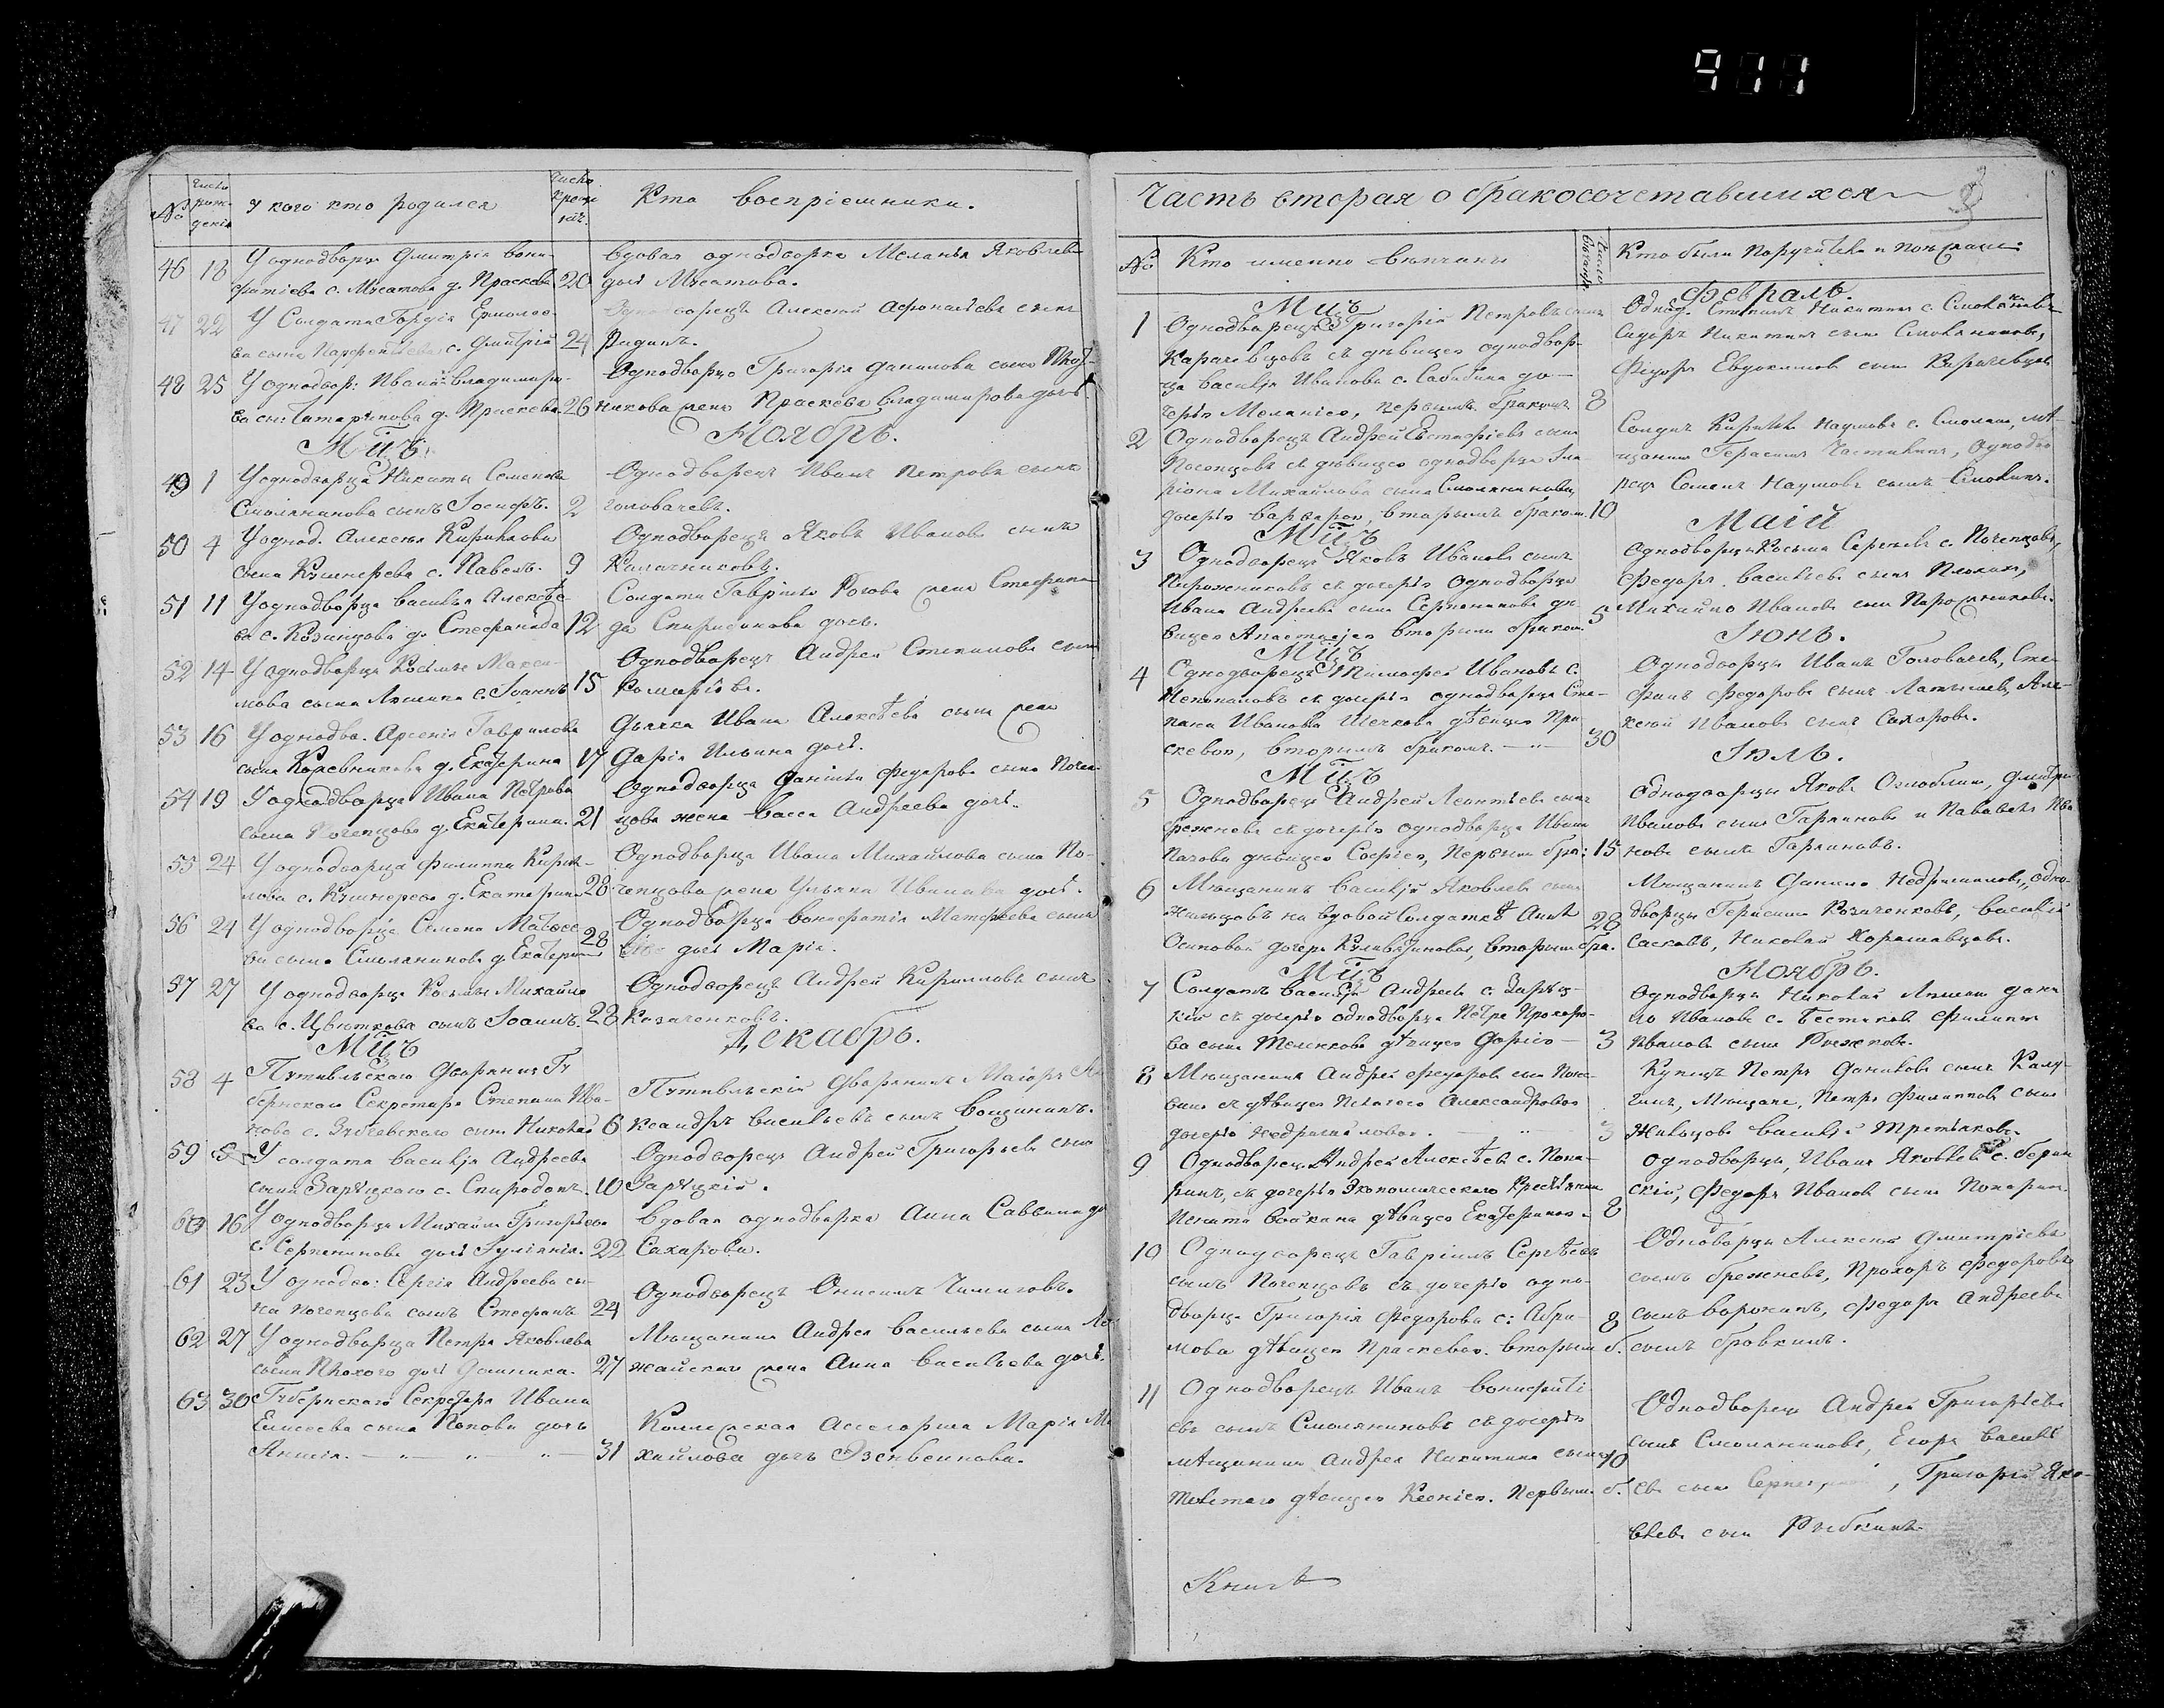 911
№
число рождения
У кого кто родился
число крещения
Кто восприемники.
46 18 У однодворца Дмитрія Вони-
фатіева с. Мусатова д. Праскева 20
Вдовая однодворка Меланья Яковлева
дочь Мусатова.
47 22 У Солдата Гордія Ермолое-
ва сына с. Дмитрій 24
Однодворецъ Алексей Афонасьевъ сынъ
48 25 У однодвор: Ивана Владимиро-
ва сы: Татаринова д. Праскева 26
Однодворца Григорія Данилова сына
жена Праскева Владимирова дочь.
Мцъ Ноябрь.
49 1 У однодворца Никиты Семенова
Смолянинова сынъ Іосифъ. 2
Однодворецъ Иванъ Петровъ сынъ
Головачевъ.
50 4 У однод. Алексея Кирилова
сына Кушнерева с. Павелъ. 9
Однодворецъ Яковъ Ивановъ сынъ
Калачниковъ.
51 11 У однодворца Василья Алексѣе
ва с. Козинцова д. Стефанида 12
Солдата Гавріила Рогова жена Стефани
да Спиридонова дочь.
52 14 У однодворца Косьмы Макси-
мова сына с. Іоаннъ 15
Однодворецъ Андрей Степановъ сынъ
53 16 У однодво. Арсенія Гаврилова
сына Кожевникова д. Екатерина 17
Дьячка Ивана Алексѣева сына жена
Дарія Ильина дочь.
54 19 У однодворца Ивана Петрова
сына Почепцова д. Екатерина. 21
Однодворца Даніила Федорова сына Почеп-
цова жена Васса Андреева дочь.
55 24 У однодворца Филиппа Кири-
лова с. Кушнерева д. Екатерина 28
Однодворца Ивана Михайлова сына По-
чепцова жена Ульяна Иванова дочь.
56 24 У однодворца Семена Матвее
ва сына Смолянинова д. Екатерина 28
Однодворца Вонифатія Матфеева сына
дочь Марія.
57 27 У однодворца Косьмы Михайло
ва с. Цвѣткова сынъ Іоаннъ. 28
Однодворецъ Андрей Кирилловъ сынъ
Козаченковъ.
Мцъ Декабрь.
58 4 Путивльскаго Дворянина Гу
бернскаго Секретаря Степана Ива-
нова с. сынъ Николай 6
Путивльскій Дворянинъ Маіоръ Але
ксандръ Васильевъ сынъ Вощининъ.
59 У солдата Василья Андреева
сына Зарѣцкаго с. Спиридонъ. 10
Однодворецъ Андрей Григорьевъ сынъ
Зарѣцкій.
60 16 У однодворца Михаила Григорьева
с. Серпенинова дочь Іуліанія. 22
Вдовая однодворка Анна Саввина до
Сахарова.
61 23 У однодво: Сергія Андреева сы-
на Почепцова сынъ Стефанъ 24
Однодворецъ Онисимъ
62 27 У однодворца Петра Яковлева
сына Плохого дочь Домника. 27
Мѣщанина Андрея Васильева сына Мо
жайскаго жена Анна Васильева дочь.
63 30 Губернскаго Секретаря Ивана
Елисеева сына Попова дочь
Анисія. 31
Коллежская Ассесорша Марія Ми
хайлова дочь
Часть вторая о бракосочетавшихся
№
Кто именно вѣнчаны
Число вѣнчанія
Кто были Поручители
Мцъ Февраль.
1 Однодворецъ Григорій Петровъ сынъ
Карачевцовъ съ дѣвицею однодвор-
ца Василія Иванова с. Сабинина до-
черью Меланіею, первымъ бракомъ 8
Однод. Степанъ Никитинъ с. Смоляниновъ
Сидоръ Никитинъ сынъ Смоляниновъ,
Федоръ Евдокимовъ сынъ Карачевцовъ
2 Однодворецъ Андрей Евстафіевъ сынъ
Почепцовъ съ дѣвицею однодворца Ила
ріона Михайлова сына Смолянинова
дочерью Варварою, вторымъ бракомъ. 10
Солдатъ Кирилъ Наумовъ с. мѣ-
щанинъ Герасимъ Частикинъ, Однодво
рецъ Семенъ Наумовъ сынъ
Мцъ Маій
3 Однодворецъ Яковъ Ивановъ сынъ
Пирожниковъ съ дочерью однодворца
Ивана Андреева сына Серпенинова дѣ-
вицею Анастасіею вторымъ бракомъ. 5
Однодворцы Косьма Сергѣевъ с. Почепцовъ,
Федоръ Васильевъ сынъ
Михайло Ивановъ сынъ Пирожниковъ.
Мцъ Іюнь.
4 Однодворецъ Тимофей Ивановъ с.
съ дочерью однодворца Сте-
пана Иванова Шечкова дѣвицею Пра
скевою, вторымъ бракомъ. 30
Однодворцы Иванъ Головачевъ, Сте-
фанъ Федоровъ сынъ Латышевъ, Але-
ксей Ивановъ сынъ Сахаровъ.
Мцъ Іюль.
5 Однодворецъ Андрей Леонтьевъ сынъ
Брежневъ съ дочерью однодворца Ивана
дѣвицею Софіею, Первымъ бра: 15
Однодворцы Яковъ Озноблинъ, Дмитри
Ивановъ сынъ и Ива
новъ сынъ
6 Мѣщанинъ Василій Яковлевъ сынъ
Жильцовъ на вдовой Солдаткѣ Аннѣ
Осиповой дочерѣ вторымъ бра. 28
Мѣщанинъ Данило Недригайловъ, одно-
дворцы Герасимъ Козаченковъ, Василій
Николай Хорошавцовъ.
Мцъ Ноябрь.
7 Солдатъ Василій Андреевъ с. Зарѣц-
кій съ дочерью однодворца Петра Прохоро-
ва сына дѣвицею Даріею 3
Однодворцы Николай Дани
ло Ивановъ с. Филиппъ
Ивановъ сынъ Рыжковъ.
8 Мѣщанинъ Андрей Федоровъ сынъ
съ дѣвицею Пелагеею Александровою
дочерью Недригайловою. 3
Купецъ Петръ Даниловъ сынъ Калу-
гинъ, Мѣщане, Петръ Филипповъ сынъ
Жильцовъ Василій Третьяковъ.
9 Однодворецъ Андрей Алексѣевъ с. Пона-
ринъ, съ дочерью Экономическаго Крестьянина
Игната дѣвицею Екатериною 8
Однодворцы, Иванъ Яковлевъ с.
скій, Федоръ Ивановъ сынъ
10 Однодворецъ Гавріилъ Сергѣевъ
сынъ Почепцовъ съ дочерью одно-
дворца Григорія Федорова с: Абра-
мова дѣвицею Праскевою. вторым б. 8
Однодворцы Алексей Дмитріевъ
сынъ Брежневъ, Прохоръ Федоровъ
сынъ Воронинъ, Федоръ Андреевъ
сынъ Бровкинъ.
11 Однодворецъ Иванъ Вонифаті
евъ сынъ Смоляниновъ съ дочерью
мѣщанина Андрея Никитина сына
Толстаго дѣвицею Ксеніею. Первым. б. 10
Однодворецъ Андрей Григорьевъ
сынъ Смоляниновъ, Егоръ Василь
евъ сынъ Григорій Яко-
влевъ сынъ Рыбкинъ.